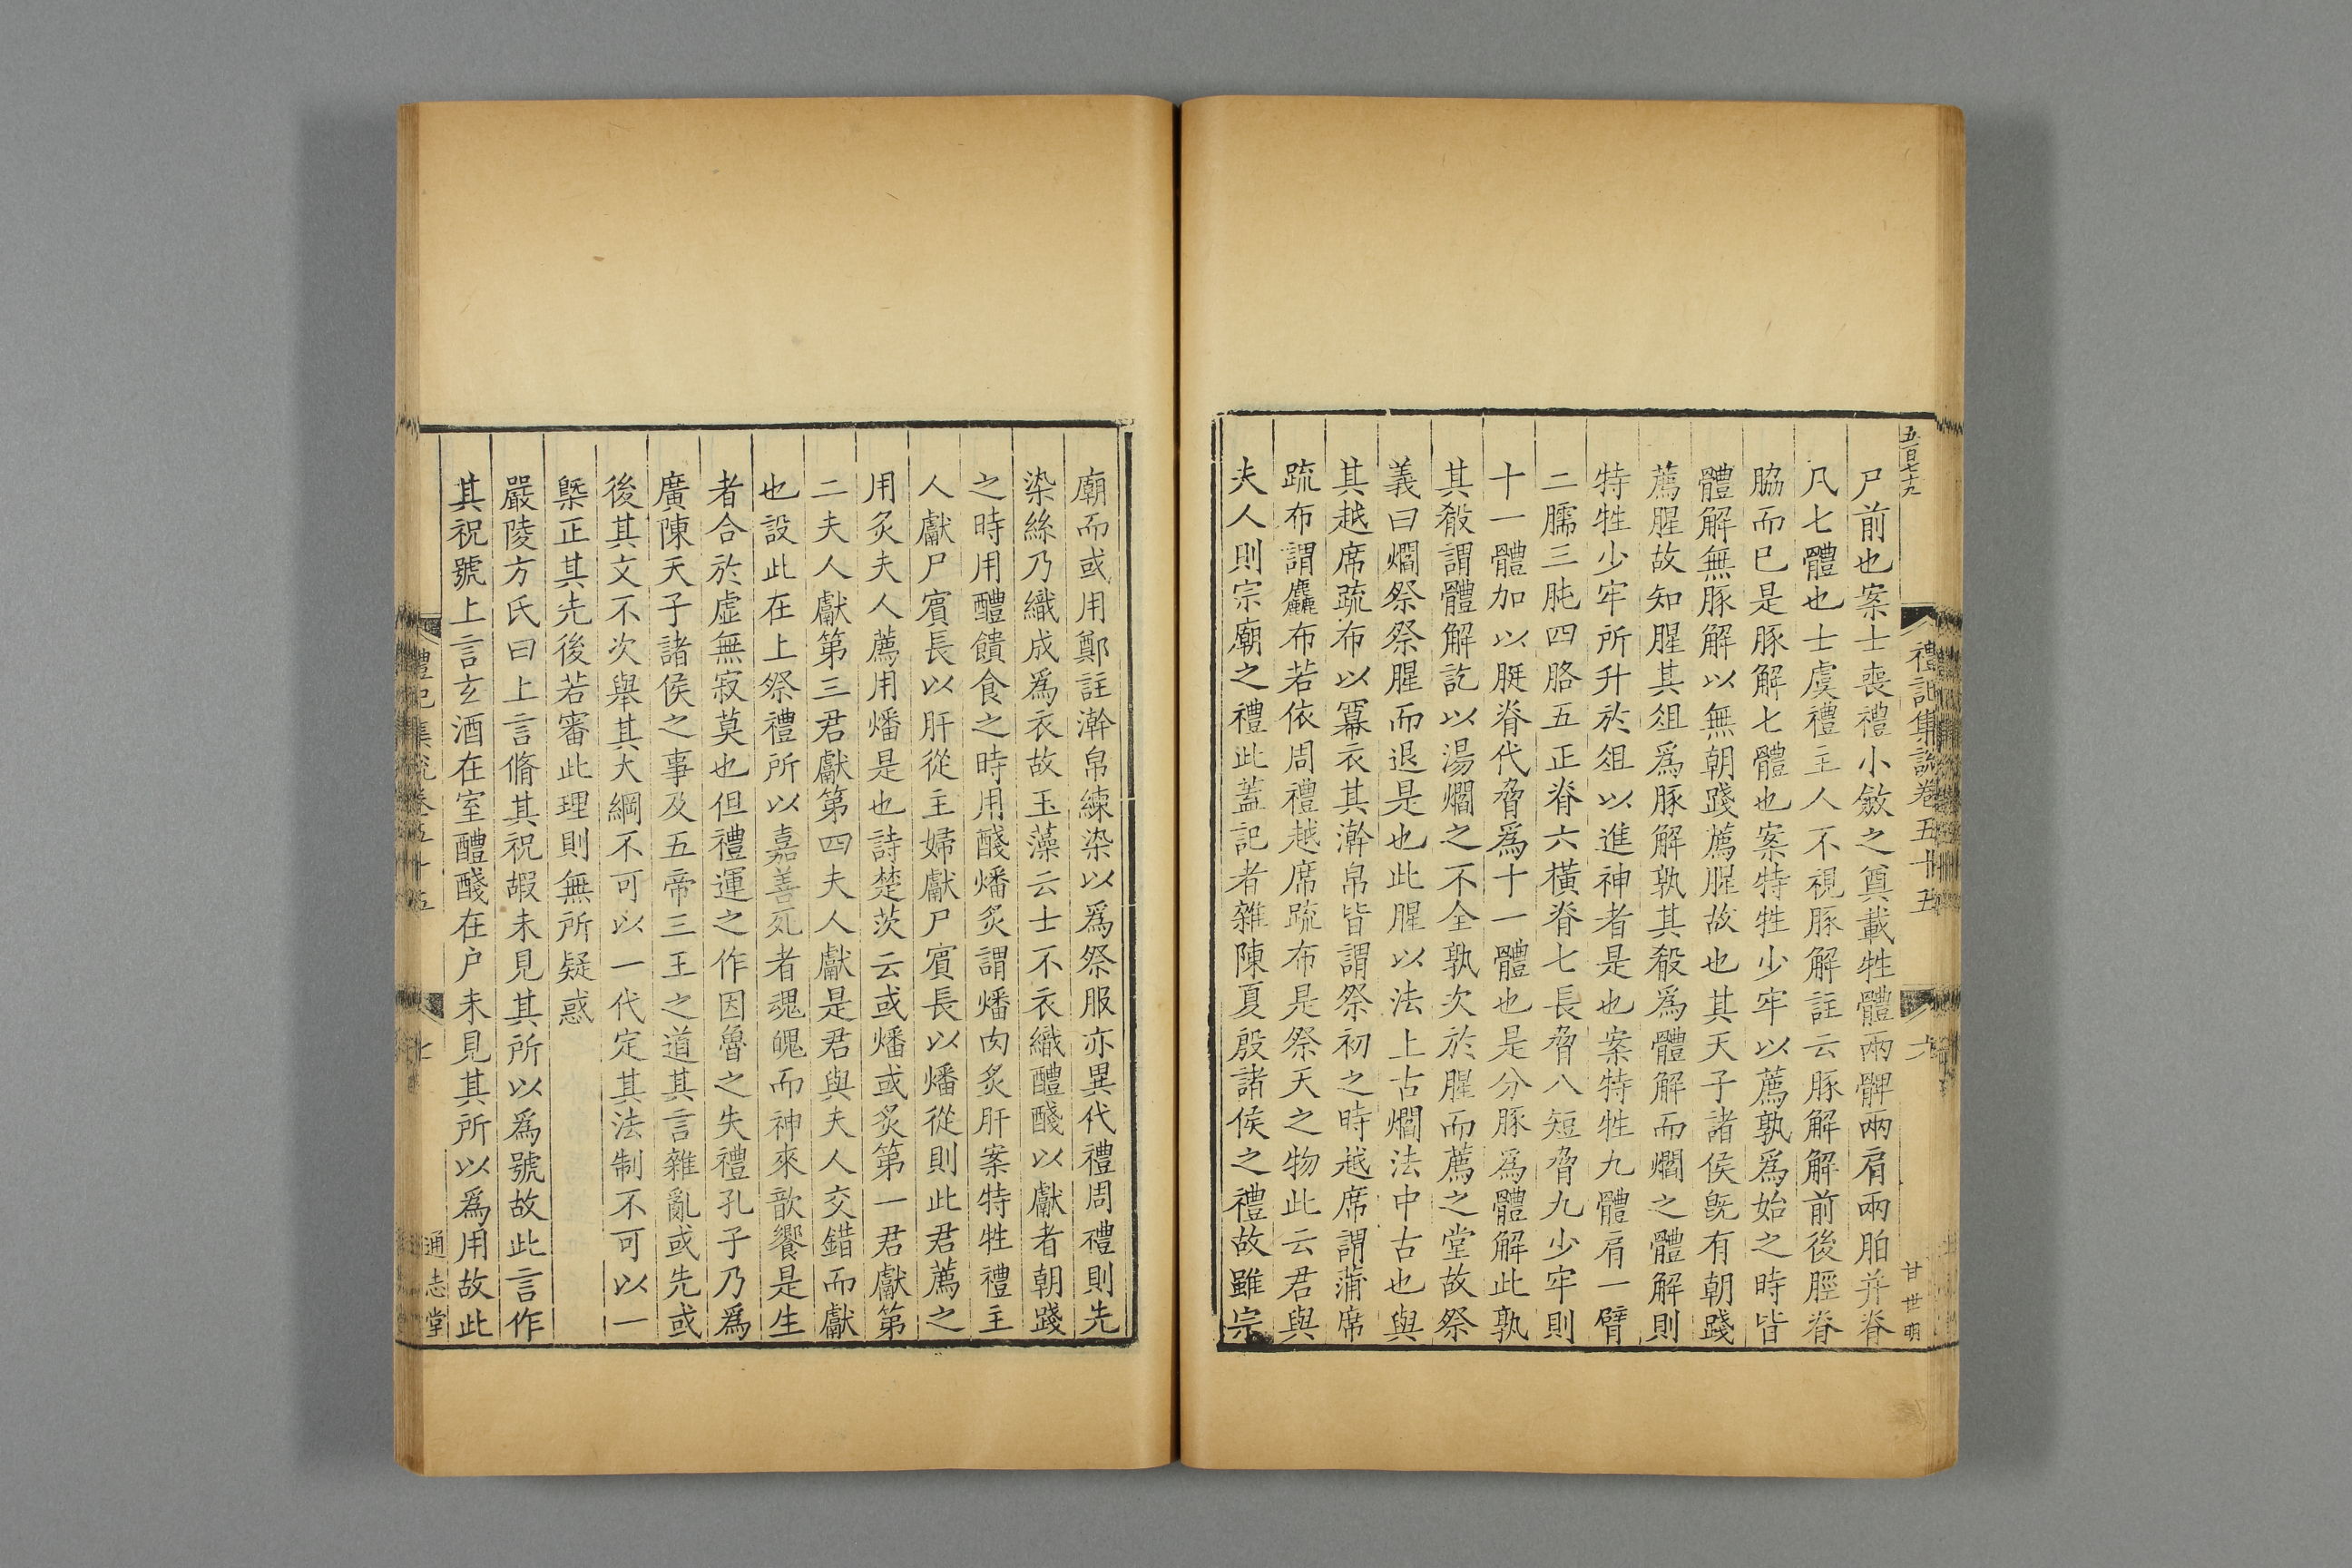 五百七十九
禮記集說卷五十五
六
甘世明
尸前也案士喪禮小斂之奠載牲體兩髀兩肩兩胉并脊
凡七體也士虞禮主人不視豚解註云豚解解前後脛脊
脇而已是豚解七體也案特牲少牢以薦孰爲始之時皆
體解無豚解以無朝踐薦腥故也其天子諸侯旣有朝踐
薦腥故知腥其俎爲豚解孰其殽爲體解而爓之體解則
特牲少牢所升於俎以進神者是也案特牲九體肩一臂
二臑三肫四胳五正脊六橫脊七長脅八短脅九少牢則
十一體加以脡脊代脅爲十一體也是分豚爲體解此孰
其殽謂體解訖以湯爓之不全孰次於腥而薦之堂故祭
義曰爓祭祭腥而退是也此腥以法上古爓法中古也與
其越席疏布以冪衣其澣帛皆謂祭初之時越席謂蒲席
疏布謂麤布若依周禮越席疏布是祭天之物此云君與
夫人則宗廟之禮此蓋記者雜陳夏殷諸侯之禮故雖宗
廟而或用鄭註澣帛練染以爲祭服亦異代禮周禮則先
染絲乃織成爲衣故玉藻云士不衣織醴醆以獻者朝踐
之時用醴饋食之時用醆燔炙謂燔肉炙肝案特牲禮主
人獻尸賓長以肝從主婦獻尸賓長以燔從則此君薦之
用炙夫人薦用燔是也詩楚茨云或燔或炙第一君獻第
二夫人獻第三君獻第四夫人獻是君與夫人交錯而獻
也設此在上祭禮所以嘉善死者魂魄而神來歆饗是生
者合於虛無寂莫也但禮運之作因魯之失禮孔子乃爲
廣陳天子諸侯之事及五帝三王之道其言雜亂或先或
後其文不次舉其大綱不可以一代定其法制不可以一
槩正其先後若審此理則無所疑惑
嚴陵方氏曰上言脩其祝嘏未見其所以爲號故此言作
其祝號上言玄酒在室醴醆在户未見其所以爲用故此
禮記集說卷五十五
七
通志堂